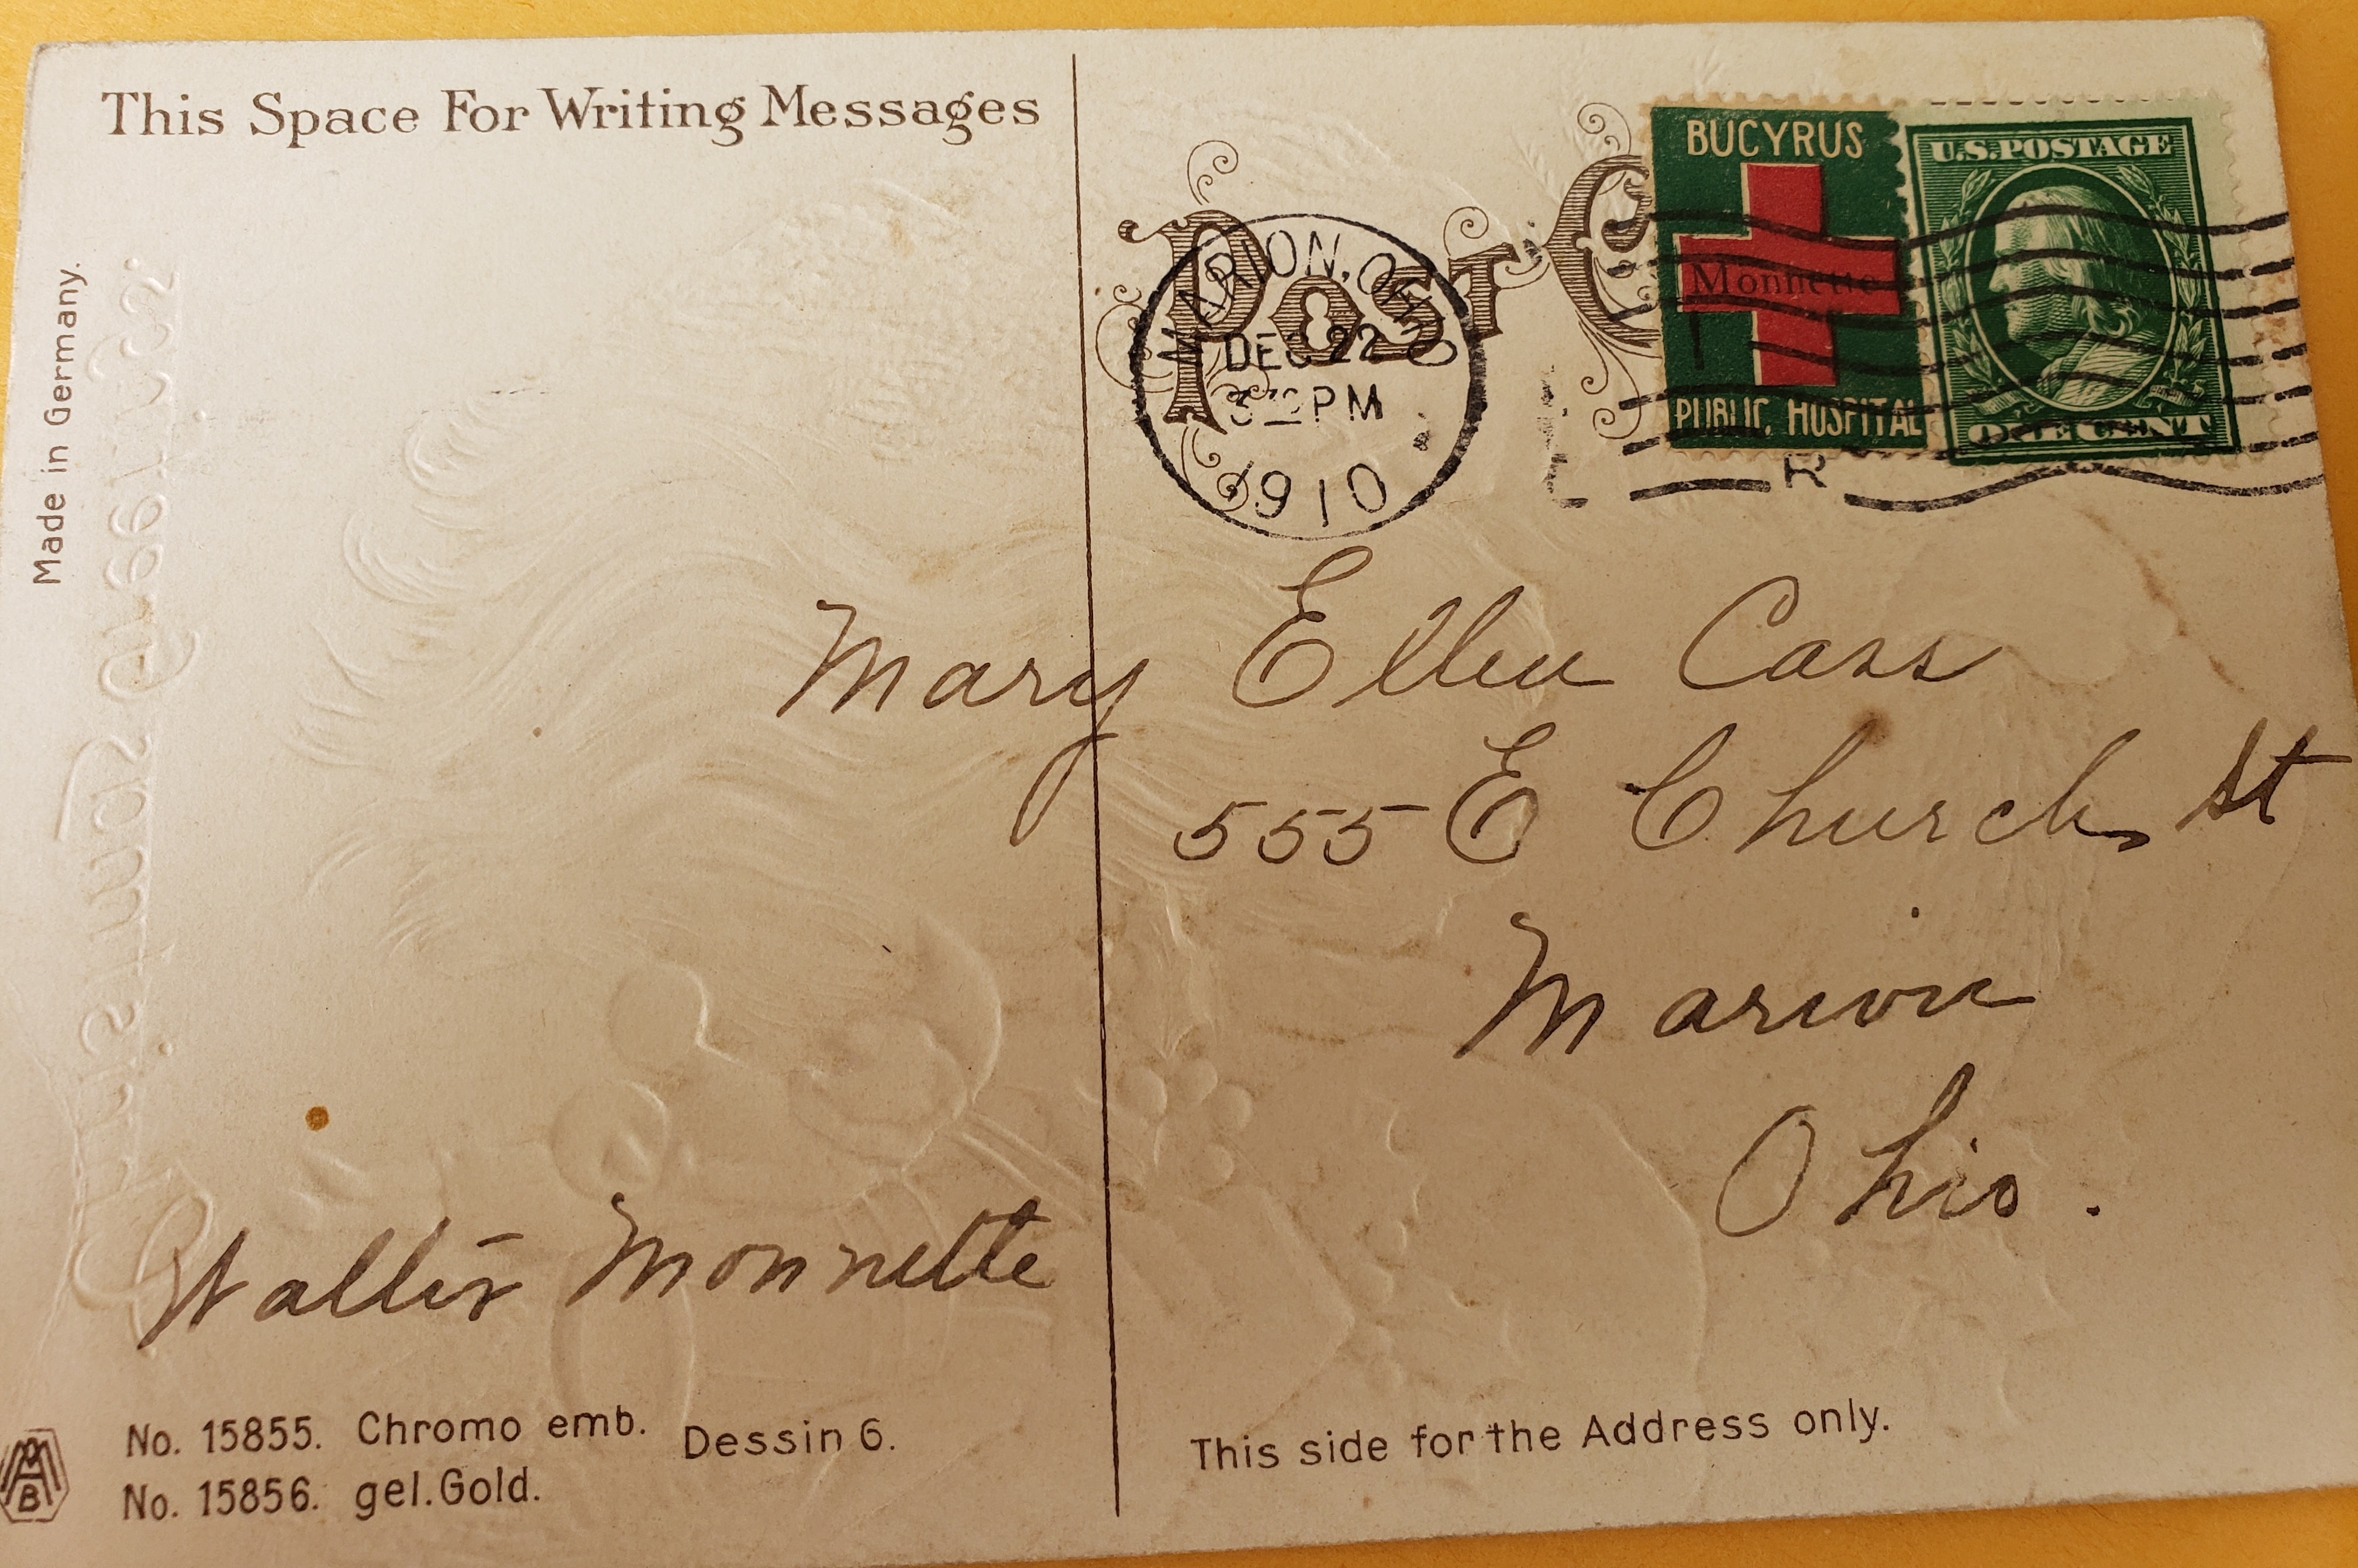 This Space For Writing Messages
Made in Germany.
POST C
MARION, OHIO
DEC 22
PM
1910
BUCYRUS
Monnette
PUBLIC HOSPITAL
U.S. POSTAGE
ONE CENT
R
Mary Ellen Cass
555 E Church St
Marion
Ohio.
Walter Monnette
No. 15855. Chromo emb. Dessin 6.
No. 15856. gel. Gold.
This side for the Address only.